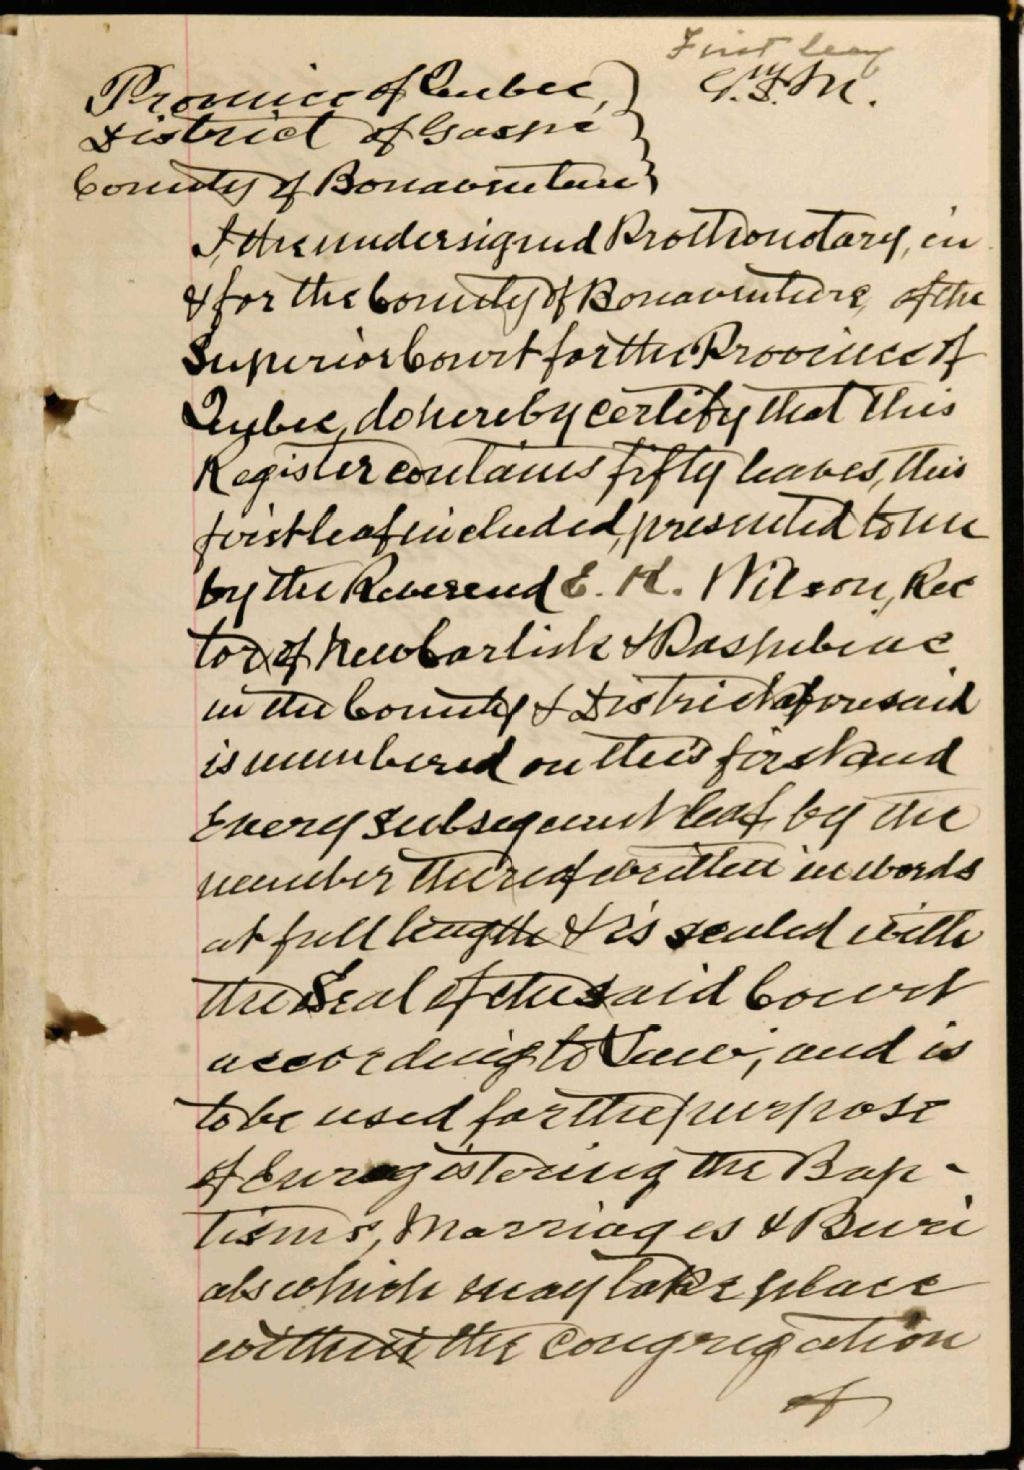 First leaf
Province of Quebec,
District of Gaspé
County of Bonaventure
I, the undersigned Prothonotary, in
& for the County of Bonaventure, of the
Superior Court for the Province of
Quebec, do hereby certify that this
Register contains fifty leaves, this
first leaf included, presented to me
by the Reverend E. H. Wilson, Rec
tor of New Carlisle & Paspebiac
in the County & District aforesaid
is numbered on this first and
every subsequent leaf by the
number thereof written in words
at full length & is sealed with
the Seal of the said Court
according to Law, and is
to be used for the purpose
of Enregistering the Bap-
tisms, Marriages & Buri
als which may take place
within the Congregation
of